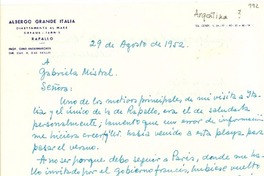 Argentina?
992
ALBERGO GRANDE ITALIA
DIRETTAMENTE AL MARE
RAPALLO
29 de Agosto de 1952.
A
Gabriela Mistral.
Señora:
Uno de los motivos principales de mi visita a Ita-
lia y el único de la de Rapallo, era el de saludarla
personalmente; lamento que un error de información
me hiciera creer que Ud. había venido a esta playa para
pasar el verano.
A no ser porque debo seguir a París, donde me ha-
llo invitado por el gobierno francés, hubiese vuelto